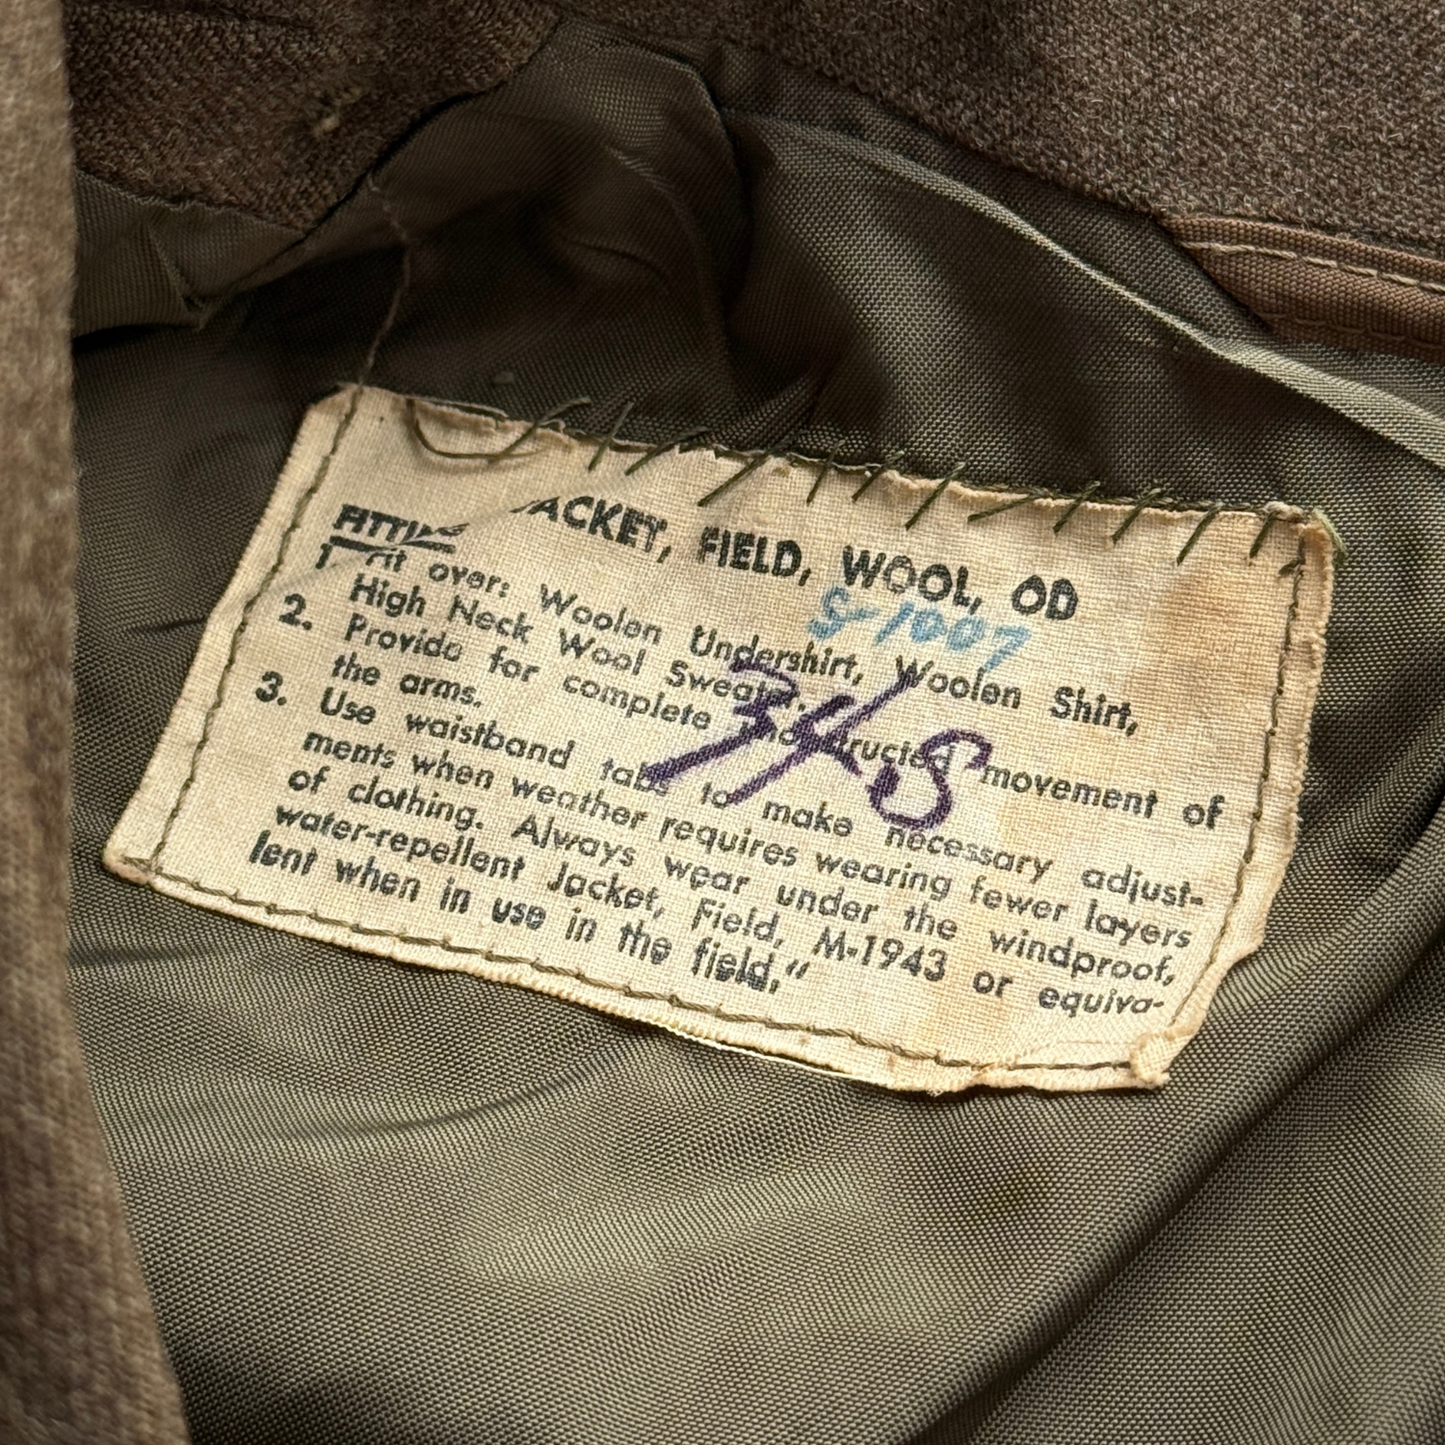 JACKET, FIELD, WOOL, OD
FITTING
S-1007
1. Fit over: Woolen Undershirt, Woolen Shirt,
High Neck Wool Sweater.
2. Provide for complete unobstructed movement of
the arms.
3. Use waistband tabs to make necessary adjust-
ments when weather requires wearing fewer layers
of clothing. Always wear under the windproof,
water-repellent Jacket, Field, M-1943 or equiva-
lent when in use in the field,"